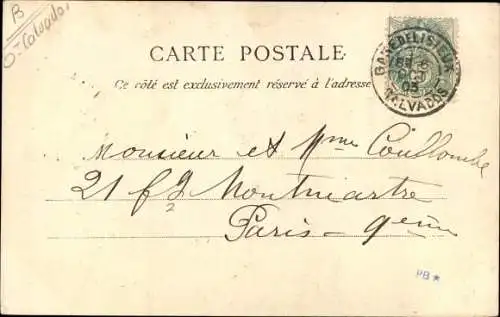 B
O-Calvados
CARTE POSTALE
Ce côté est exclusivement réservé à l'adresse
GARE DE LISIEUX
CALVADOS
03
Monsieur et Mme Coullombe
21 fg Montmartre
Paris - 9ème
PB*